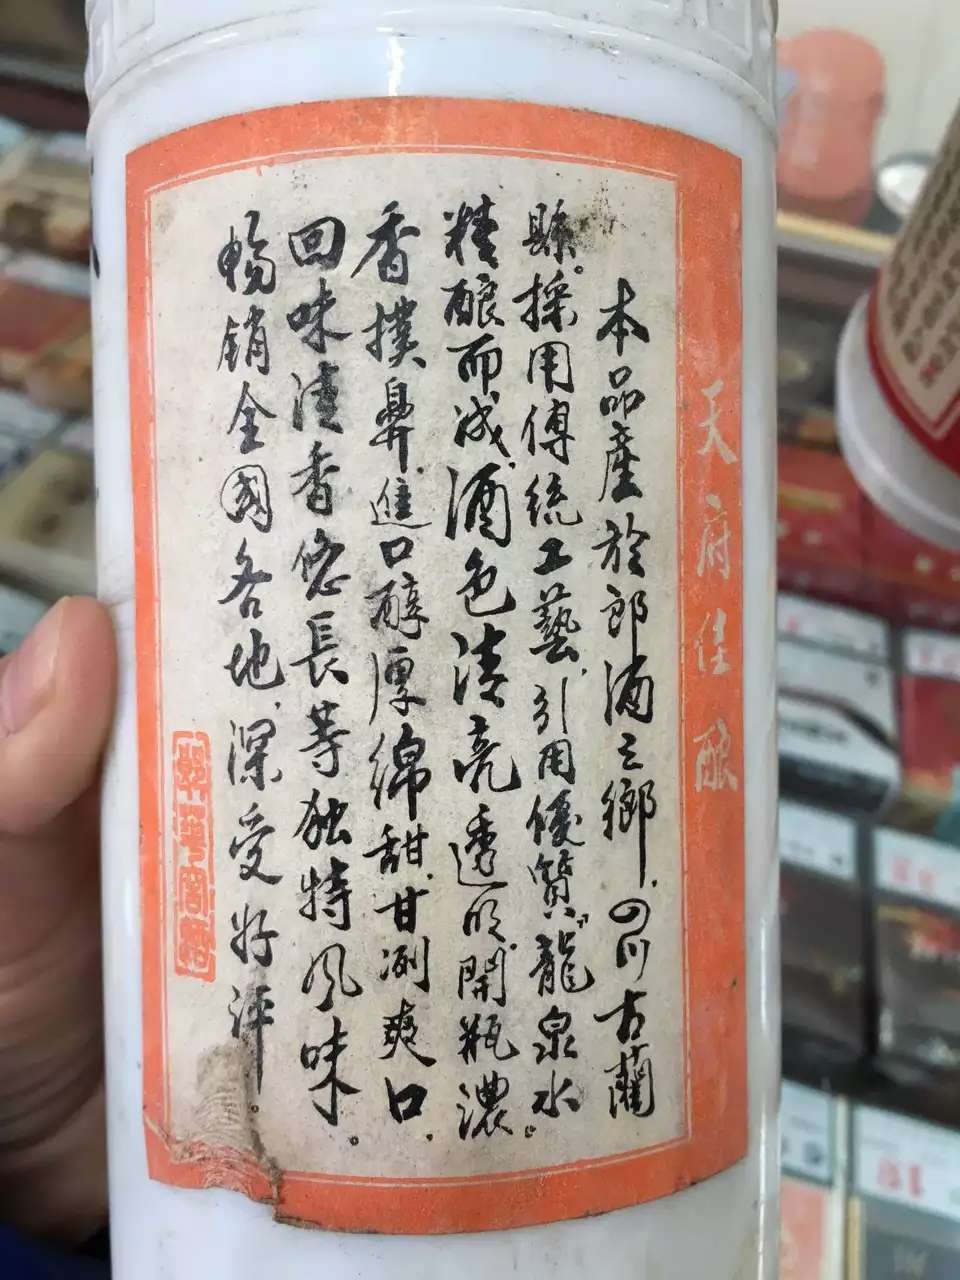 天府佳酿
本品產於郎酒之鄉,四川古藺
縣。採用傳統工藝,引用優質"龍泉水"
精酿而成,酒色清亮透明,開瓶濃
香撲鼻,進口醇厚綿甜,甘冽爽口,
回味清香悠長等独特風味。
畅销全國各地,深受好评。